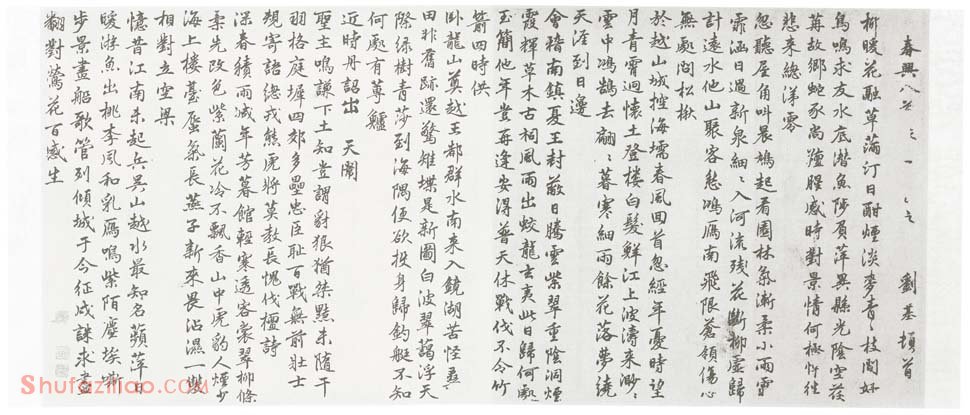 春興八首 劉基頓首
柳暖花融草滿汀日酣煙淡麥青〻枝間好
鳥鳴求友水底潛魚陟負萍異縣光陰空荏
苒故鄉蛇豕尚羶腥感時對景情何極往
悲來總涕零
忽聽屋角叫晨鳩起看園林氣漸柔小雨霏
霏涵日過新泉細〻入河流殘花斷柳虛歸
計遠水他山聚客愁鴻雁南飛限蒼嶺傷心
無處問松楸
於越山城控海壖春風回首忽經年憂時望
月青霄迥懷土登樓白髮鮮江上波濤來渺〻
雲中鴻鵠去翩〻暮寒細雨餘花落夢繞
天涯到日邊
會稽南鎮夏王封蔽日騰雲紫翠重陰洞煙
霞輝草木古祠風雨出蛟龍玄夷此日歸何處
玉簡他年豈再逢安得普天休戰伐不令竹
箭四時供
臥龍山奠越王都群水南來入鏡湖苦怪桑
田非舊跡還驚雉堞是新圖白波翠藹浮天
際綠樹青莎到海隅便欲投身歸釣艇不知
何處有蓴鱸
近時丹詔出 天閽
聖主鳴謙下土知豈謂豺狼猶桀黠未隨干
羽格庭墀四郊多壘忠臣恥百戰無前壯士
規寄語總戎熊虎將莫教長愧伐檀詩
深春積雨減年芳暮館輕寒透客裳翠柳條
柔先改色紫蘭花冷不飄香山中虎豹人煙少
海上樓臺蜃氣長燕子新來畏沾濕一雙
相對立空梁
憶昔江南未起兵吳山越水最知名蘋萍日
暖游魚出桃李風和乳雁鳴紫陌塵埃嘶
步景畫船歌管列傾城于今征戍誅求盡
翻對鶯花百感生
Shufaziliao.com